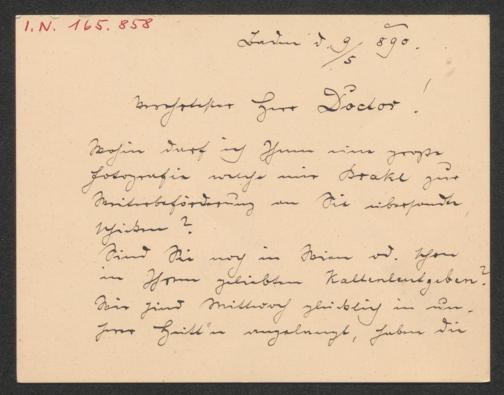 I.N. 165.858
Baden d. 9/5 890.
Verehrtester Herr Doctor!
Wohin darf ich Ihnen eine große
Fotografie welche mir Drakl zur
Weiterbeförderung an Sie übersendet
schicken?
Sind Sie noch in Wien od. schon
in Ihrem geliebten Kaltenleutgeben?
Wir sind Mittwoch glücklich in un-
srer Hütt'n angelangt, haben die